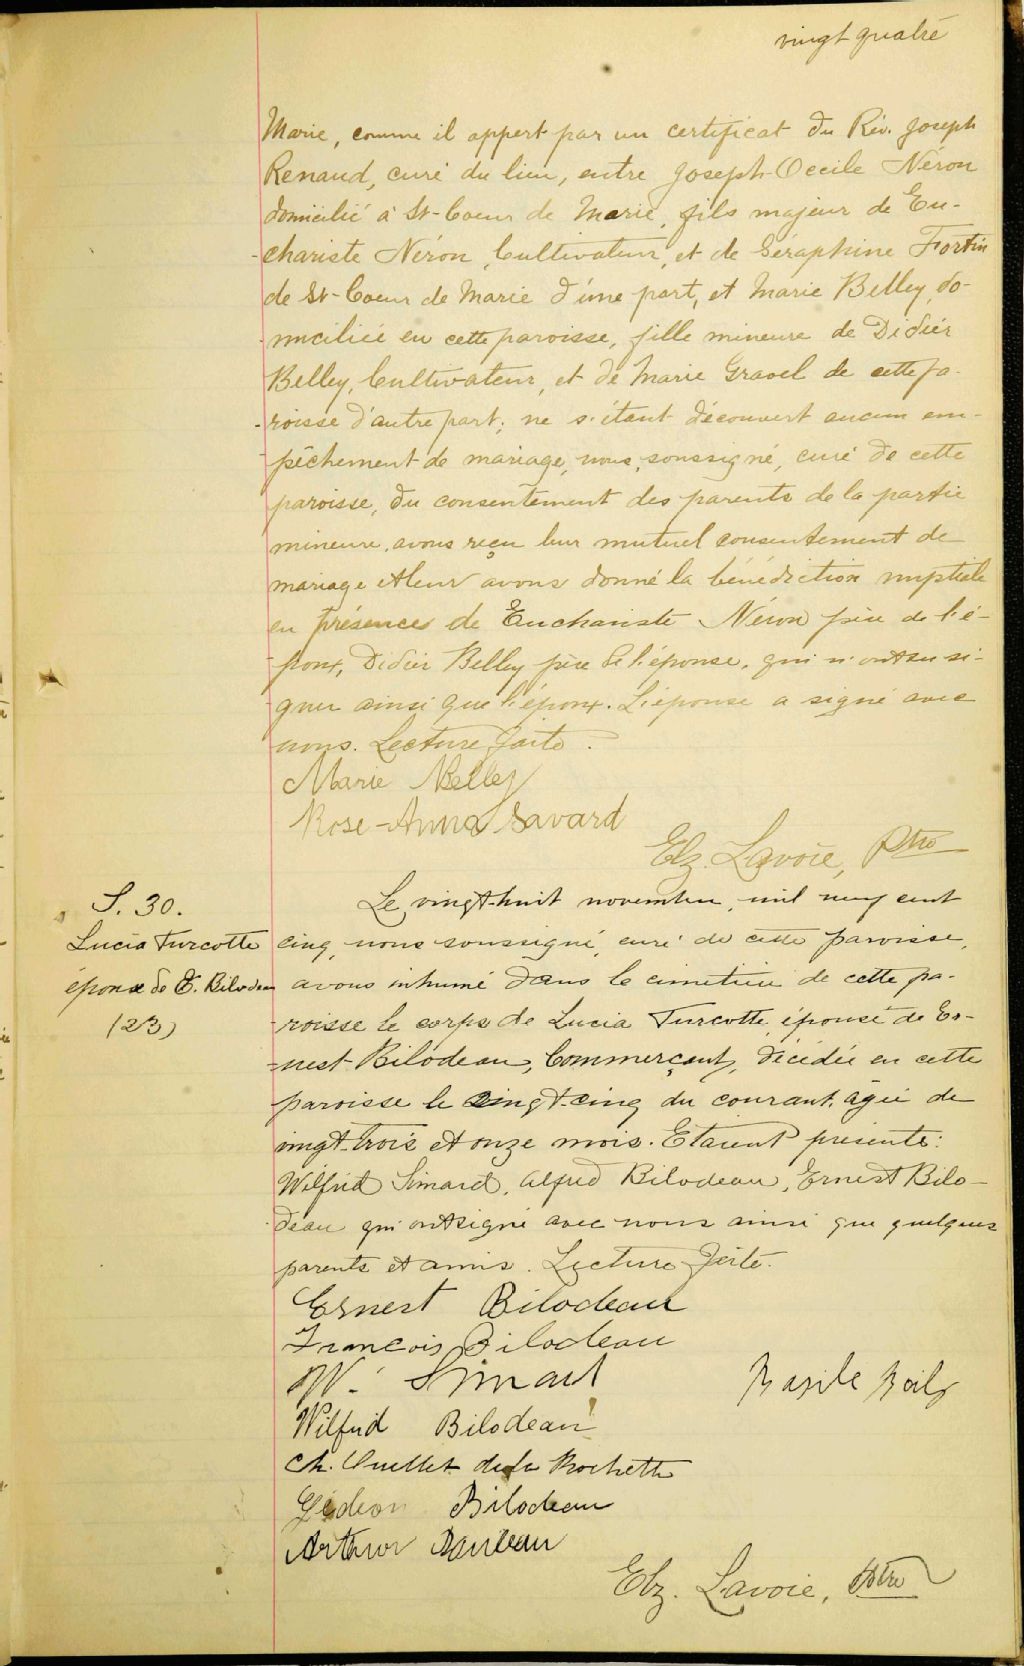 vingt quatre
Marie, comme il appert par un certificat du Rév. Joseph
Renaud, curé du lieu, entre Joseph-Occile Néron
domicilié à St-Coeur de Marie, fils majeur de Eu-
-chariste Néron, Cultivateur, et de Séraphine Fortin
de St-Coeur de Marie d'une part, et Marie Belley, do-
-miciliée en cette paroisse, fille mineure de Didier
Belley, Cultivateur, et de Marie Gravel de cette pa-
-roisse d'autre part; ne s'étant découvert aucun em-
-pêchement de mariage, nous, soussigné, curé de cette
paroisse, du consentement des parents de la partie
mineure, avons reçu leur mutuel consentement de
mariage et leur avons donné la bénédiction nuptiale
en présences de Euchariste Néron père de l'é-
-poux, Didier Belley père de l'épouse, qui n'ont su si-
gner ainsi que l'époux. L'épouse a signé avec
nous. Lecture faite.
Marie Belley
Rose-Anna Savard
Elz. Lavoie, Ptre
S. 30.
Lucia Turcotte
épouse de E. Bilodeau
(23)
Le vingt-huit novembre, mil neuf cent
cinq, nous soussigné, curé de cette paroisse,
avons inhumé dans le cimetière de cette pa-
-roisse le corps de Lucia Turcotte, épouse de Er-
-nest Bilodeau, Commerçant, décédée en cette
paroisse le vingt-cinq du courant, agée de
vingt-trois et onze mois. Etaient présents:
Wilfrid Simard, Alfred Bilodeau, Ernest Bilo-
-deau qui ont signé avec nous ainsi que quelques
parents et amis. Lecture faite.
Ernest Bilodeau
François Bilodeau
W. Simard
Basile Boily
Wilfrid Bilodeau
Ch. Ouellet de la Rochette
Gédéon Bilodeau
Arthur
Elz. Lavoie, Ptre